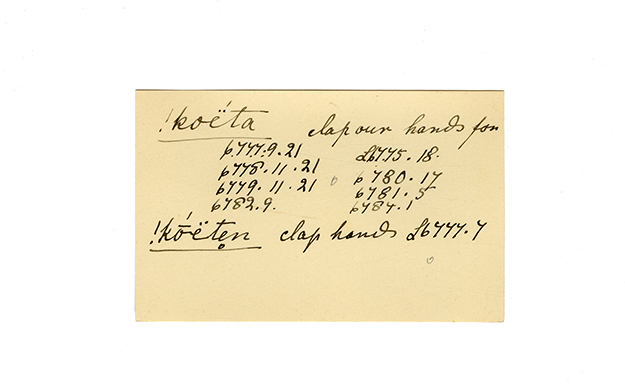 !kóëta clap our hands for
6777.9.21 £6775.18.
6778.11.21 6780.17
6779.11.21 6781.5
6782.9. 6784.1
!kṓëtẹn clap hands £6777.7